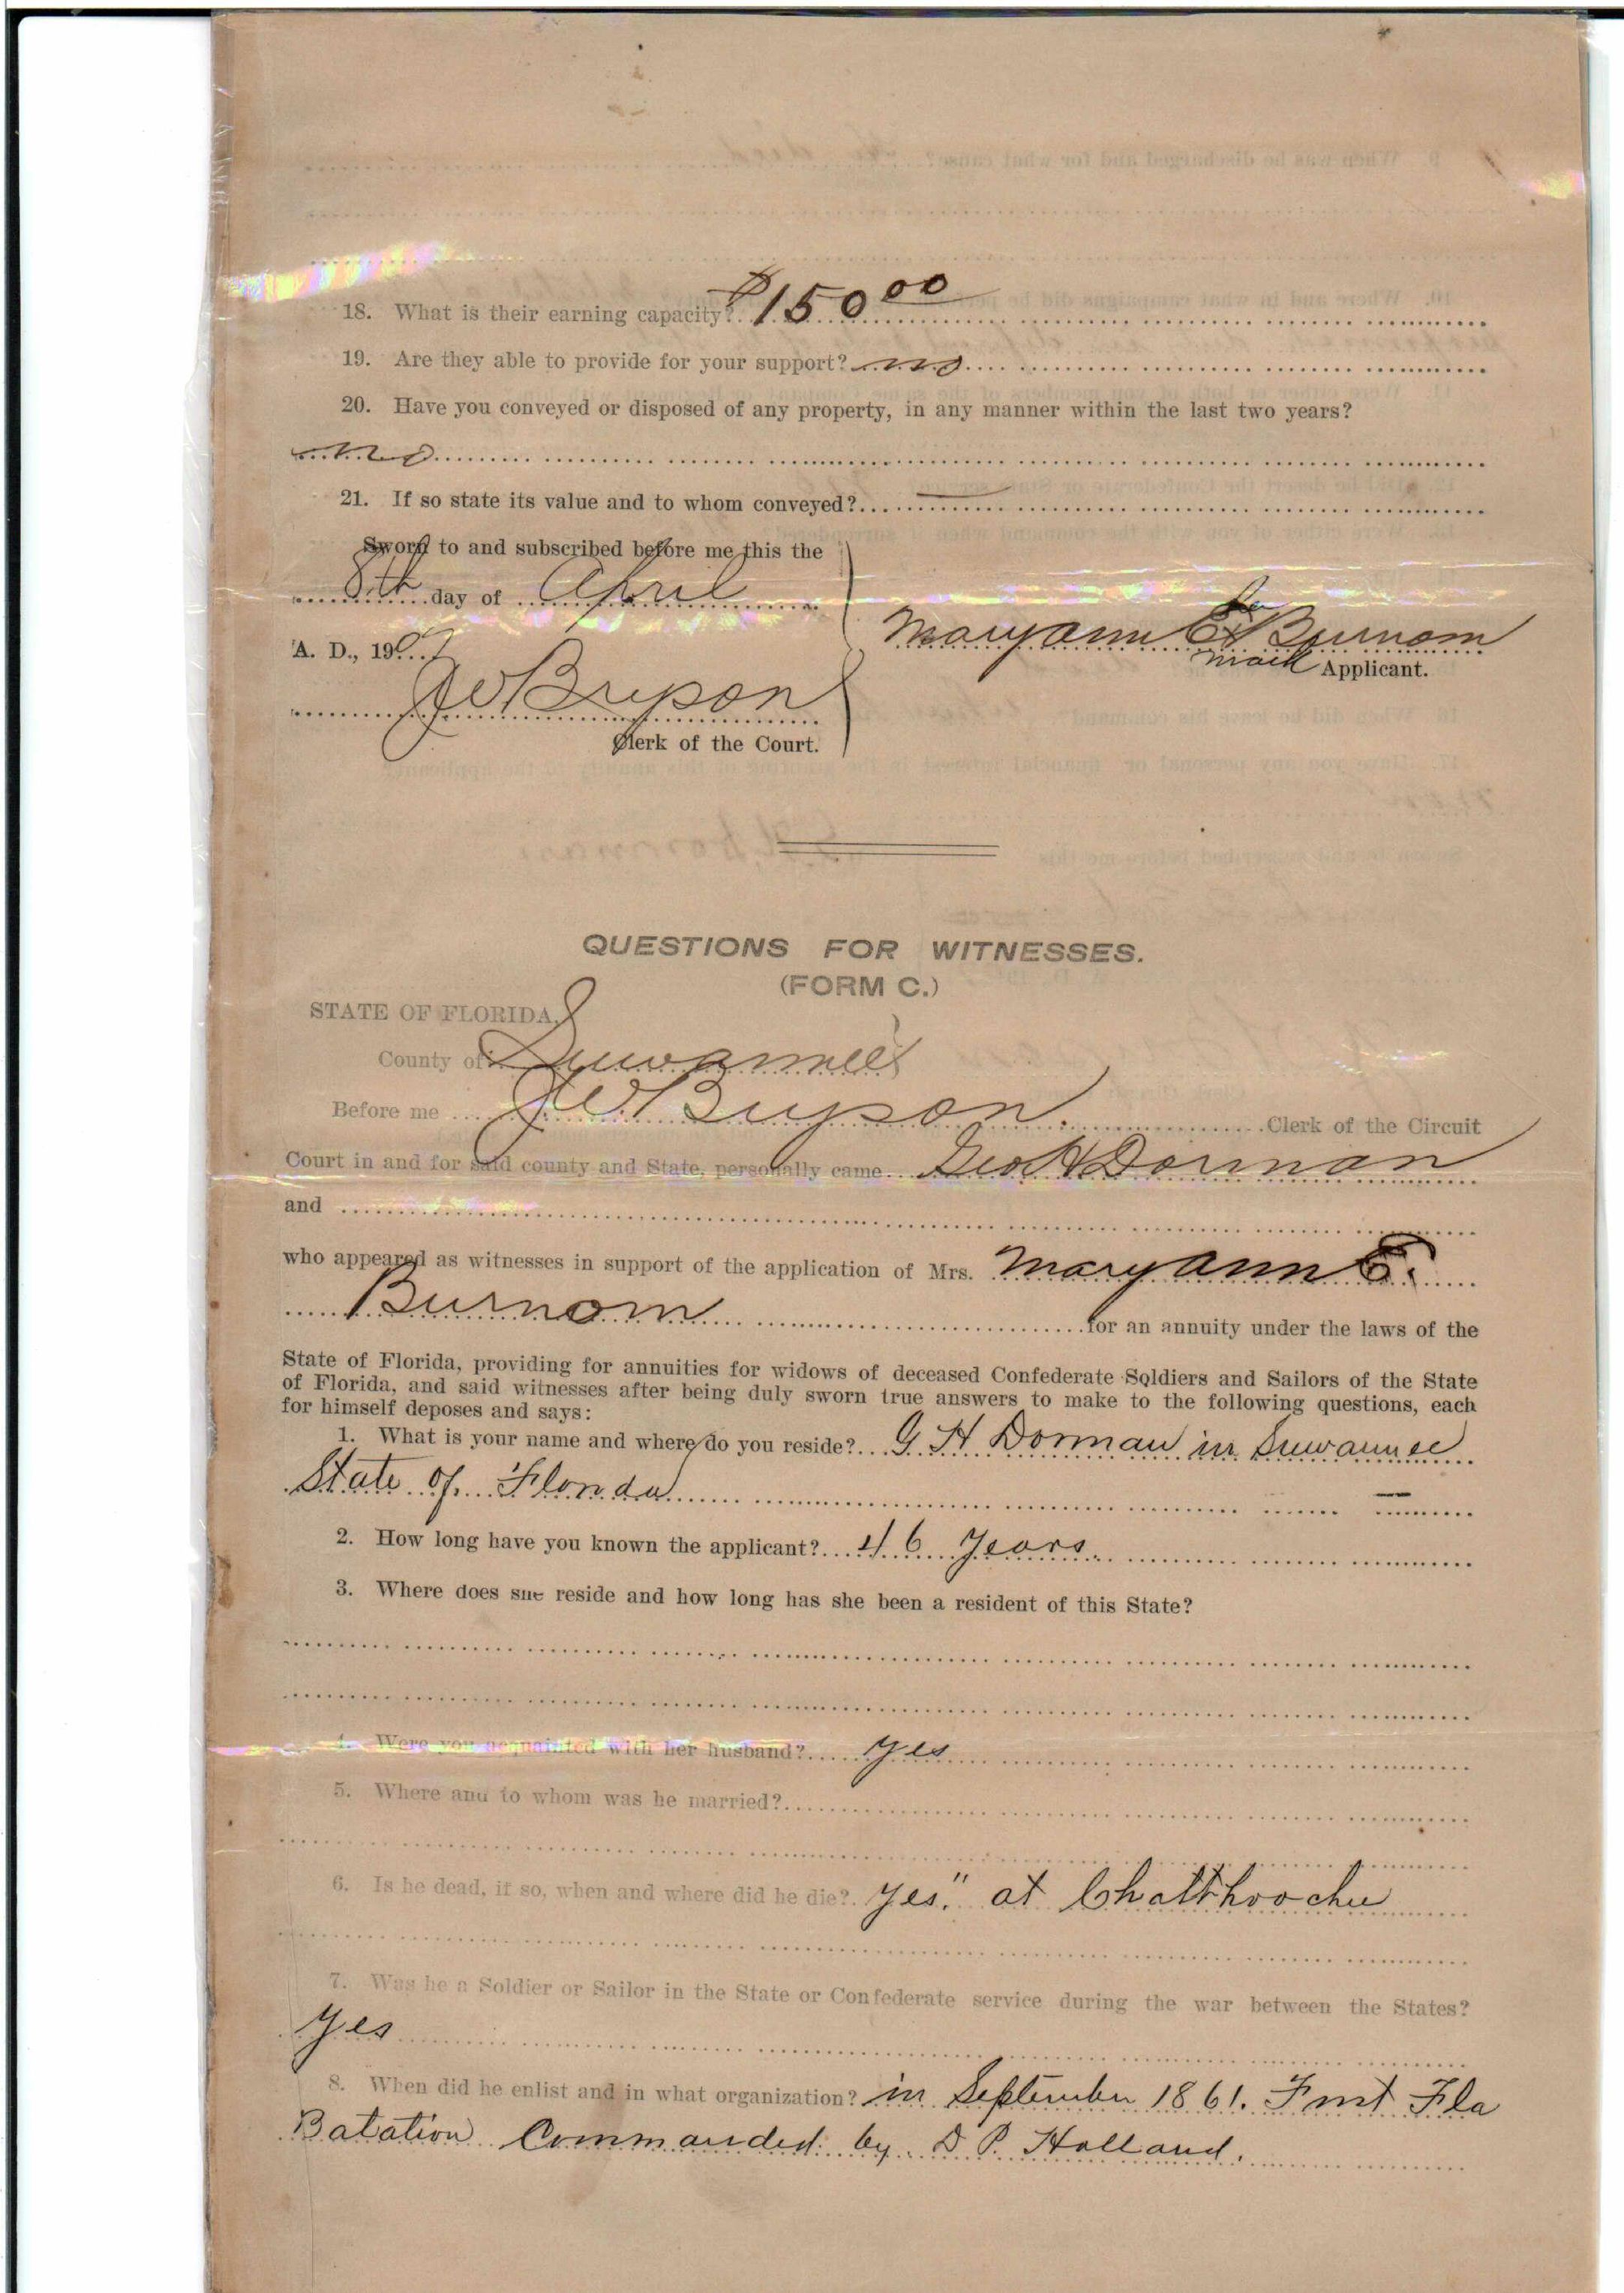 18. What is their earning capacity? $150.00
19. Are they able to provide for your support? no
20. Have you conveyed or disposed of any property, in any manner within the last two years?
no
21. If so state its value and to whom conveyed?
Sworn to and subscribed before me this the
8th day of April
A. D., 1907
Maryann E. her x mark Burnom
Applicant.
J W Bryson
Clerk of the Court.
QUESTIONS FOR WITNESSES.
(FORM C.)
STATE OF FLORIDA,
County of Suwannee
Before me J W Bryson Clerk of the Circuit
Court in and for said county and State, personally came Geo H Dorman
and
who appeared as witnesses in support of the application of Mrs. Maryann E.
Burnom for an annuity under the laws of the
State of Florida, providing for annuities for widows of deceased Confederate Soldiers and Sailors of the State
of Florida, and said witnesses after being duly sworn true answers to make to the following questions, each
for himself deposes and says:
1. What is your name and where do you reside? G H Dorman in Suwannee
State of Florida
2. How long have you known the applicant? 46 Years.
3. Where does she reside and how long has she been a resident of this State?
4. Were you acquainted with her husband? yes
5. Where and to whom was he married?
6. Is he dead, if so, when and where did he die? yes." at Chatthoochee
7. Was he a Soldier or Sailor in the State or Confederate service during the war between the States?
yes
8. When did he enlist and in what organization? in September 1861. First Fla
Batation Commanded by D P. Holland.